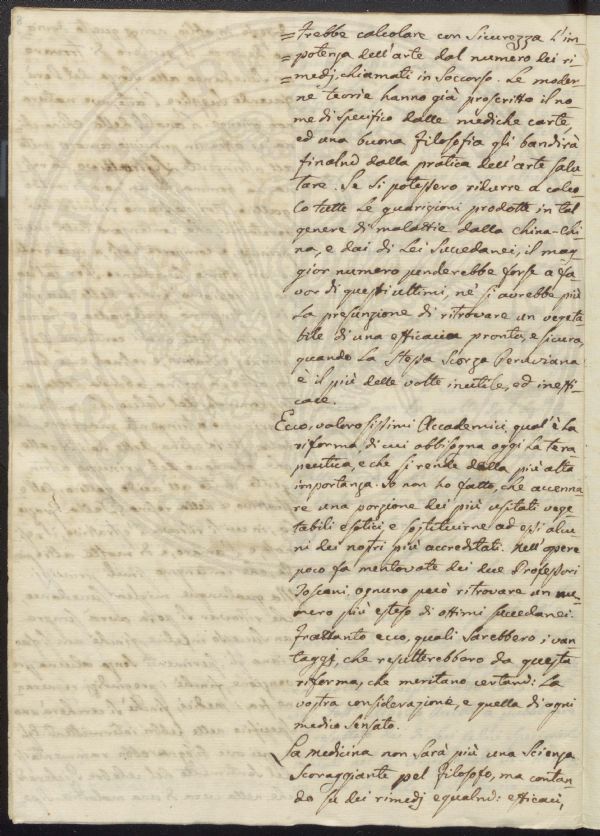 =trebbe calcolare con sicurezza l'im=
=potenza dell'arte dal numero dei ri=
=medj, chiamati in soccorso. Le moder=
ne teorie hanno già proscritto il no=
me di specifico dalle mediche carte,
ed una buona filosofia gli bandirà
finalm: dalla pratica dell'arte salu=
tare. Se si potessero ridurre a calco
lo tutte le guarigioni prodotte in tal
genere di malattie dalla china-chi=
na, e dai di Lei succedanei, il mag=
gior numero penderebbe forse a fa=
vor di questi ultimi, né si avrebbe più
la presunzione di ritrovare un vegeta=
bile di una efficacia pronta, e sicura,
quando la stessa scorza Peruviana
è il più delle volte inutile, ed ineffi=
cace.
Ecco, valorosissimi Accademici, qual'è la
riforma, di cui abbisogna oggi la tera
peutica, e che si rende della più alta
importanza. Io non ho fatto, che accenna
re una porzione dei più usitati vege
tabili esotici e sostituirne ad essi alcu
ni dei nostri più accreditati. Nell'opere
poco fa mentovate dei due Professori
Toscani, ognuno può ritrovare un nu=
mero più esteso di ottimi succedanei.
Frattanto ecco, quali sarebbero i van
taggi, che resulterebbero da questa
riforma, che meritano certam: la
vostra considerazione, e quella di ogni
medico sensato.
La medicina non sarà più una scienza
scoraggiante pel filosofo, ma contan=
do su dei rimedj egualm: efficaci,